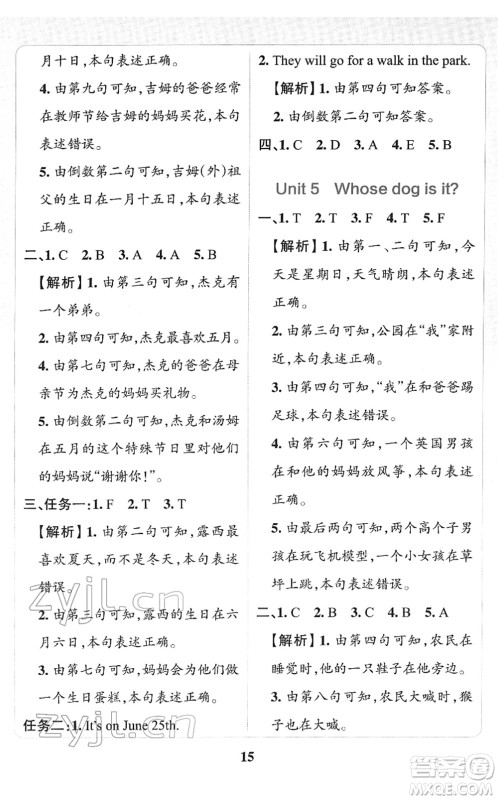 月十日，本句表述正确。
4. 由第九句可知，吉姆的爸爸经常
在教师节给吉姆的妈妈买花，本句
表述错误。
5. 由倒数第二句可知，吉姆(外)祖
父的生日在一月十五日，本句表述
正确。
二、1. C 2. B 3. A 4. A 5. B
【解析】1. 由第三句可知，杰克有
一个弟弟。
2. 由第四句可知，杰克最喜欢五月。
4. 由第七句可知，杰克的爸爸在母
亲节为杰克的妈妈买礼物。
5. 由倒数第二句可知，杰克和汤姆
在五月的这个特殊节日里对他们
的妈妈说“谢谢你！”
三、任务一：1. F 2. T 3. T
【解析】1. 由第二句可知，露西最
喜欢夏天，而不是冬天，本句表述
错误。
2. 由第三句可知，露西的生日在六
月六日，本句表述正确。
3. 由第七句可知，妈妈将会给她做
一个生日蛋糕，本句表述正确。
任务二：1. It's on June 25th.
2. They will go for a walk in the park.
【解析】1. 由第四句可知答案。
2. 由倒数第二句可知答案。
四、1. C 2. D 3. A 4. E 5. B
Unit 5 Whose dog is it?
一、1. T 2. T 3. F 4. T 5. F
【解析】1. 由第一、二句可知，今
天是星期日，天气晴朗，本句表述
正确。
2. 由第三句可知，公园在“我”家附
近，本句表述正确。
3. 由第四句可知，“我”在和爸爸踢
足球，本句表述错误。
4. 由第六句可知，一个英国男孩
在和他的妈妈放风筝，本句表述
正确。
5. 由最后两句可知，两个高个子男
孩在玩飞机模型，一个小女孩在草
坪上跳，本句表述错误。
二、1. C 2. A 3. B 4. B 5. A
【解析】1. 由第四句可知，农民在
睡觉时，他的一只鞋子在他旁边。
4. 由第八句可知，农民大喊时，猴
子也在大喊。
15
zyjl.cn
zyjl.cn